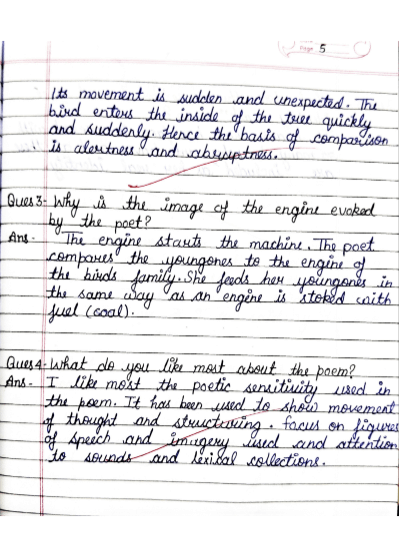 Page 5
Its movement is sudden and unexpected. The
bird enters the inside of the tree quickly
and suddenly. Hence the basis of comparison
is alertness and abruptness.
Ques 3- Why is the image of the engine evoked
by the poet?
Ans - The engine starts the machine. The poet
compares the youngones to the engine of
the birds family. She feeds her youngones in
the same way as an engine is stoked with
fuel (coal).
Ques 4- What do you like most about the poem?
Ans - I like most the poetic sensitivity used in
the poem. It has been used to show movement
of thought and structuring. focus on figures
of speech and imagery used and attention
to sounds and lexical collections.